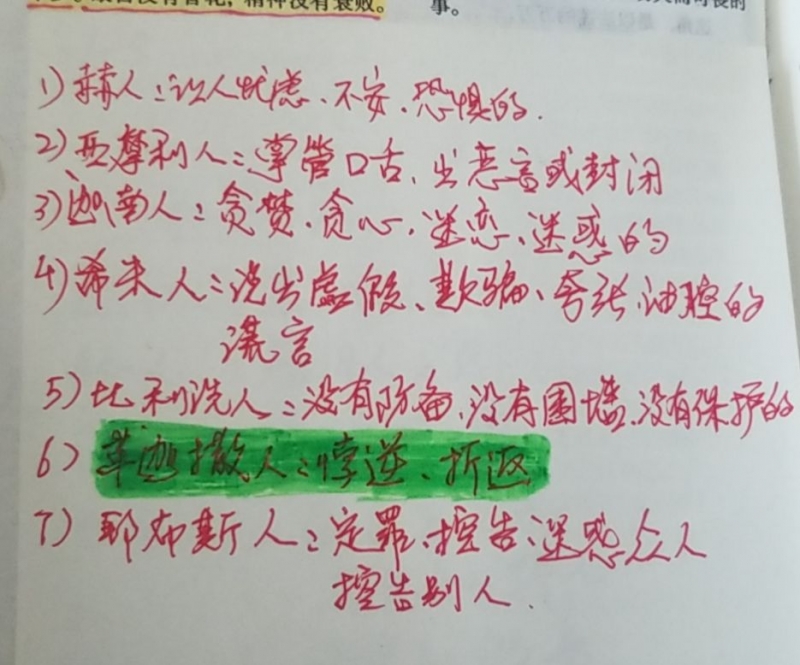 精神没有衰败。
事。
1)赫人：让人忧虑、不安、恐惧的.
2)亚摩利人：掌管口舌、出恶言或封闭
3)迦南人：贪婪、贪心、迷恋、迷惑的
4)希未人：说出虚假、欺骗、夸张、油腔的
谎言
5)比利洗人：没有防备、没有围墙、没有保护的
6)革迦撒人：悖逆、折返
7)耶布斯人：定罪、控告、迷惑众人
控告别人.